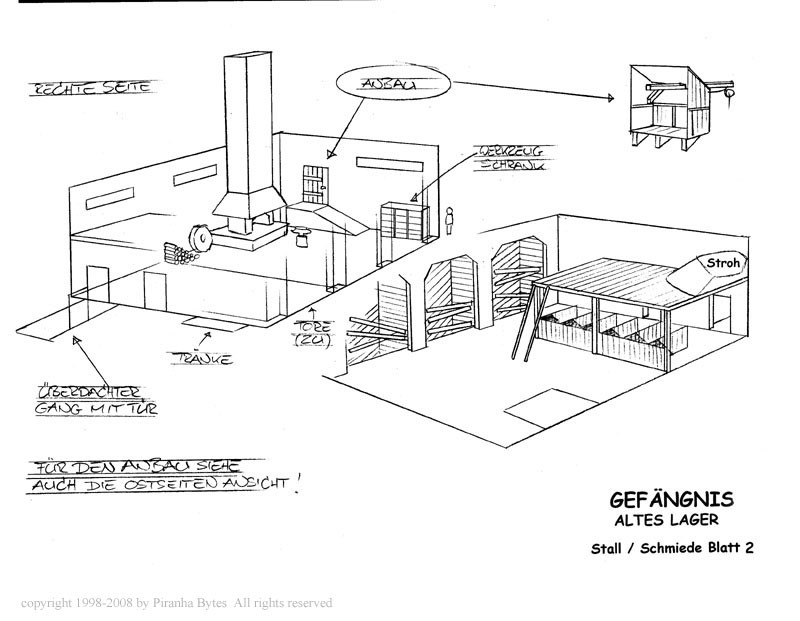 RECHTE SEITE
ANBAU
WERKZEUG
SCHRANK
Stroh
TORE
(ZU)
TRÄNKE
ÜBERDACHTER
GANG MIT TÜR
FÜR DEN ANBAU SIEHE
AUCH DIE OSTSEITEN ANSICHT!
GEFÄNGNIS
ALTES LAGER
Stall / Schmiede Blatt 2
copyright 1998-2008 by Piranha Bytes All rights reserved